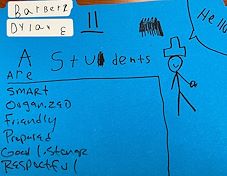 Barberz
Dylan E
Hello
A Students
Are
SMART
Organized
Friendly
Prepared
Good listener
Respectful